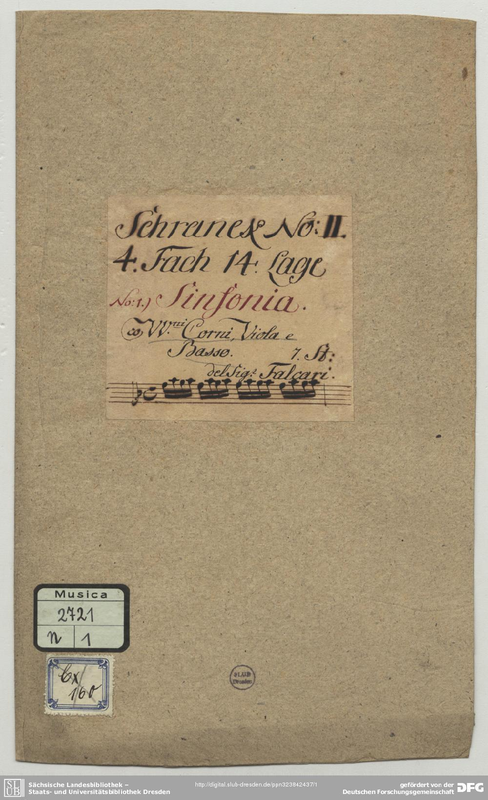 Schranck No: II.
4. Fach 14. Lage
No: 1.) Sinfonia.
co, VV.ni Corni, Viola e
Basso. 7. St:
del Sig.r Falcari.
Musica
2721
n 1
Cx
160
SLUB
Dresden
SLUB
Sächsische Landesbibliothek –
Staats- und Universitätsbibliothek Dresden
http://digital.slub-dresden.de/ppn323842437/1
gefördert von der
Deutschen Forschungsgemeinschaft DFG